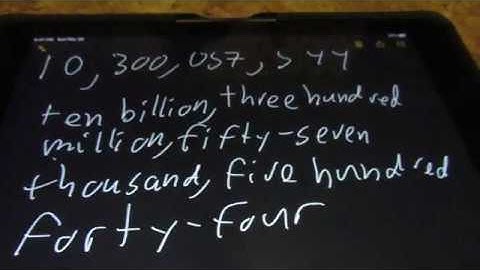 10,300,057,544
ten billion, three hundred
million, fifty-seven
thousand, five hundred
forty-four